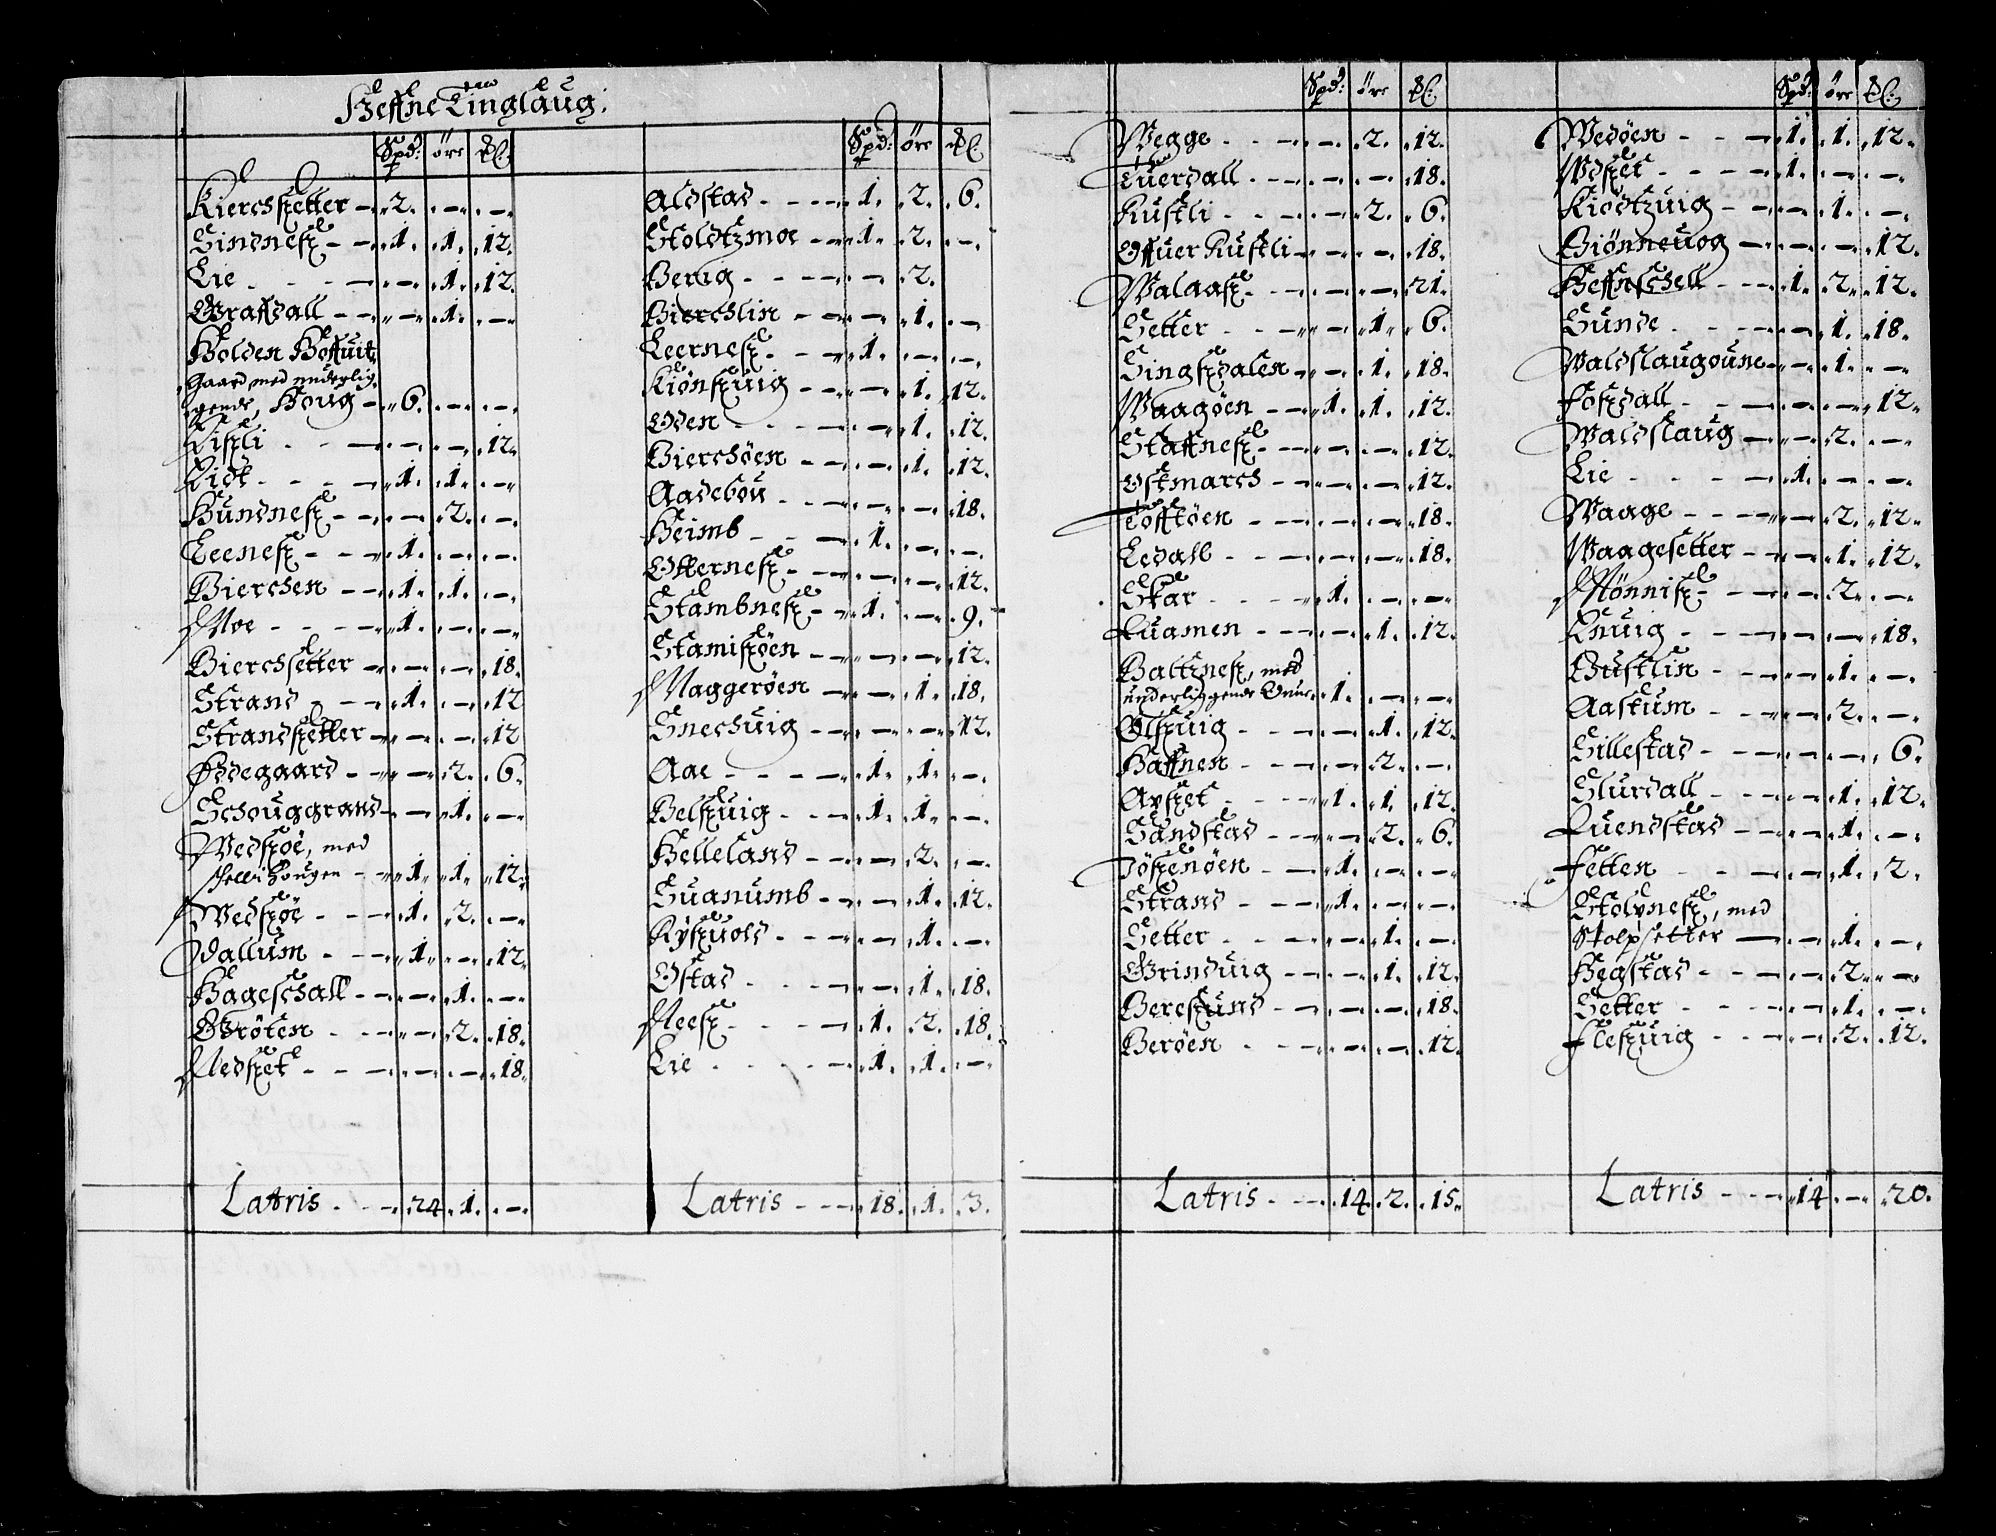 Heffne Tinglaug:
Spd: öre ℔:
Kierchsetter - 2. - -
Sindness - 1. 1. 12.
Lie - - 1. 12.
Graffdall - - 1. -
Holden Hoffuit
gaard, med underlig
gende, Houg - 6. - -
Lissli - - - 12.
Kidt - 1. 1. -
Hundness - - 2. -
Leeness - 1. - -
Bierchen - 1. 1. -
Moe - 1. - -
Bierchsetter - - - 18.
Strand - 1. - 12
Strandsetter - - - 12
Ødegaard - - 2. 6.
Schouggrand - - 1. -
Wedsöe, med
schellihougen - 1. 1. 12.
Wedsöe - 1. 2. -
Wallum - 1. - 12.
Hageschall - - 1. -
Gröten - - 2. 18.
Nedset - - - 18.
Latris - 24. 1. -
Spd: öre ℔:
Aldstad - 1. 2. 6.
Stoldtzmoe - 1. 2. -
Berrig - - 2.
Bierchlin - - 1. -
Leerness - 1. - -
Kiönssuig - - 1. 12.
Oden - - 1. 12.
Bierchöen - - 1. 12.
Aadebou - - - 18.
Heimb - 1. - -
Otterness - - - 12.
Stambness - 1. - 9.
Stamisöen - - - 12.
Maggeröen - - 1. 18.
Snechuig - - - 12.
Aae - 1. 1. -
Belssuig - 1. 1. -
Helleland - - 2. -
Suanumb - - 1. 12.
Kysuold - - 1. -
Ostad - - 1. 18.
Neess - 1. 2. 18.
Lie - 1. 1. -
Latris - 18. 1. 3.
Spd: öre ℔:
Wegge - - 2. 12.
Tuerdall - - - 18.
Rustli - - 2. 6.
Offuer Rustli - - - 18.
Walaass - - - 21.
Setter - - 1. 6.
Singssdalen - - 1. 18.
Waagöen - 1. 1. 12.
Staffness - - - 12.
Ostmarch - - - 12.
Tofftöen - - - 18.
Ledall - - - 18.
Skar - 1. - -
Quamen - - 1. 12.
Baltness, med
underliggende - 1. - -
Olssuig - - 1. 12.
Haffnen - - 2. -
Aysset - 1. 1. 12.
Sandstad - - 2. 6.
Jössenöen - 1. - -
Strand - 1. - -
Setter - - 1. -
Grinduig - - 1. 12.
Beressund - - - 18.
Beröen - - - 12.
Latris - 14. 2. 15.
Spd: öre ℔:
Wedöen - 1. 1. 12.
Udset - 1. - -
Kiodtzuig - - 1. -
Biönneuog - - - 12.
Heffnschell - 1. 2. 12.
Sunde - - 1. 18.
Waldslaugoune - - 1. -
Fossdall - - - 12.
Waldslaug - - 2. -
Lie - 1. - -
Waage - - 2. 12.
Waagesetter - - 1. 12.
Mönniss - - 2. -
Knuig - - - 18.
Bustlin - - 1. -
Aastum - - 2. -
Sillestad - - - 6.
Slurdall - - 1. 12.
Quendstad - - 1. -
Fetten - - 1. 2.
Stolpness, med
Stolpsetter - - 1. -
Hegstad - - 2. -
Setter - - 1. -
Flessuig - - 2. 12.
Latris - 14. - 20.